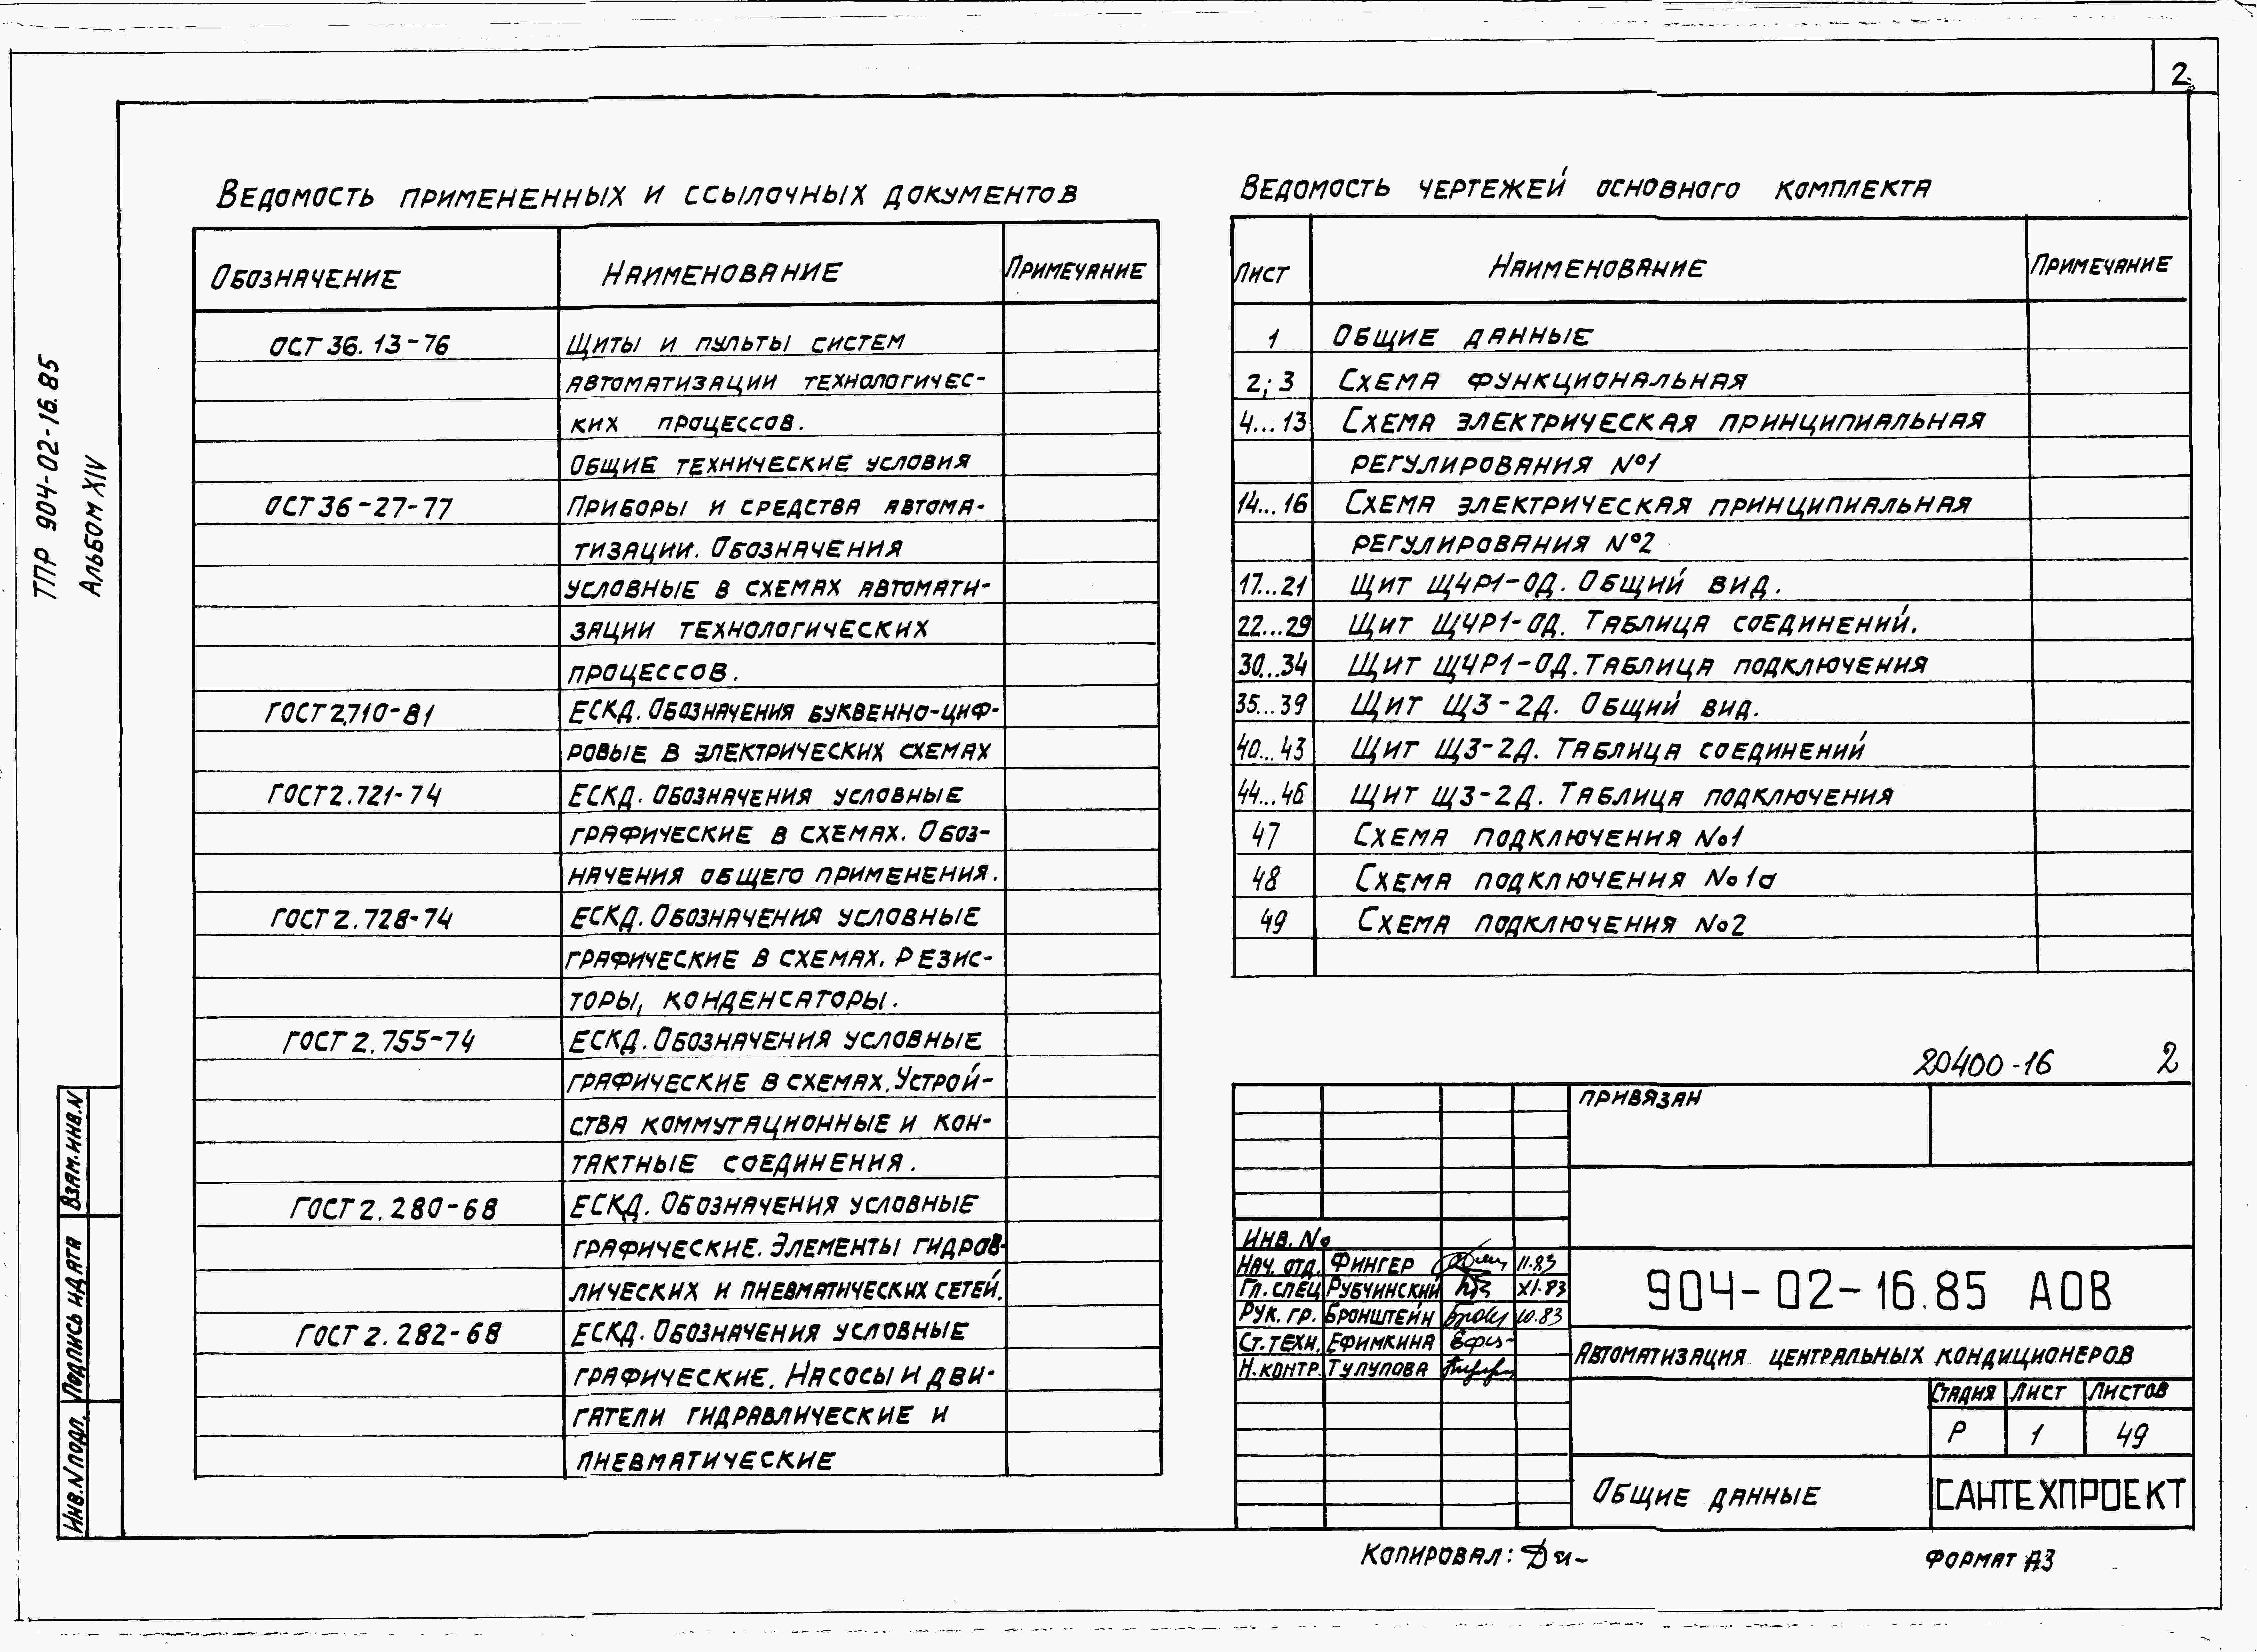 2
ТПР 904-02-16.85
Альбом XIV
Ведомость примененных и ссылочных документов
Обозначение Наименование Примечание
ОСТ 36.13-76 Щиты и пульты систем
автоматизации технологичес-
ких процессов.
Общие технические условия
ОСТ 36-27-77 Приборы и средства автома-
тизации. Обозначения
условные в схемах автомати-
зации технологических
процессов.
ГОСТ 2.710-81 ЕСКД. Обозначения буквенно-циф-
ровые в электрических схемах
ГОСТ 2.721-74 ЕСКД. Обозначения условные
графические в схемах. Обоз-
начения общего применения.
ГОСТ 2.728-74 ЕСКД. Обозначения условные
графические в схемах. Резис-
торы, конденсаторы.
ГОСТ 2.755-74 ЕСКД. Обозначения условные
графические в схемах. Устрой-
ства коммутационные и кон-
тактные соединения.
ГОСТ 2.280-68 ЕСКД. Обозначения условные
графические. Элементы гидрав-
лических и пневматических сетей.
ГОСТ 2.282-68 ЕСКД. Обозначения условные
графические. Насосы и дви-
гатели гидравлические и
пневматические
Ведомость чертежей основного комплекта
Лист Наименование Примечание
1 Общие данные
2; 3 Схема функциональная
4...13 Схема электрическая принципиальная
регулирования №1
14...16 Схема электрическая принципиальная
регулирования №2
17...21 Щит ЩЧР1-0Д. Общий вид.
22...29 Щит ЩЧР1-0Д. Таблица соединений.
30...34 Щит ЩЧР1-0Д. Таблица подключения
35...39 Щит Щ3-2Д. Общий вид.
40...43 Щит Щ3-2Д. Таблица соединений
44...46 Щит Щ3-2Д. Таблица подключения
47 Схема подключения №1
48 Схема подключения №1а
49 Схема подключения №2
20400-16 2
Привязан
Инв. №
Нач. отд. Фингер 11.83
Гл. спец. Рубчинский XI.83
Рук. гр. Бронштейн 10.83
Ст. техн. Ефимкина
Н. контр. Тулупова
904-02-16.85 АОВ
Автоматизация центральных кондиционеров
Стадия Лист Листов
Р 1 49
Общие данные
САНТЕХПРОЕКТ
Взам. инв. N
Подпись и дата
Инв. N подл.
Копировал:
Формат А3